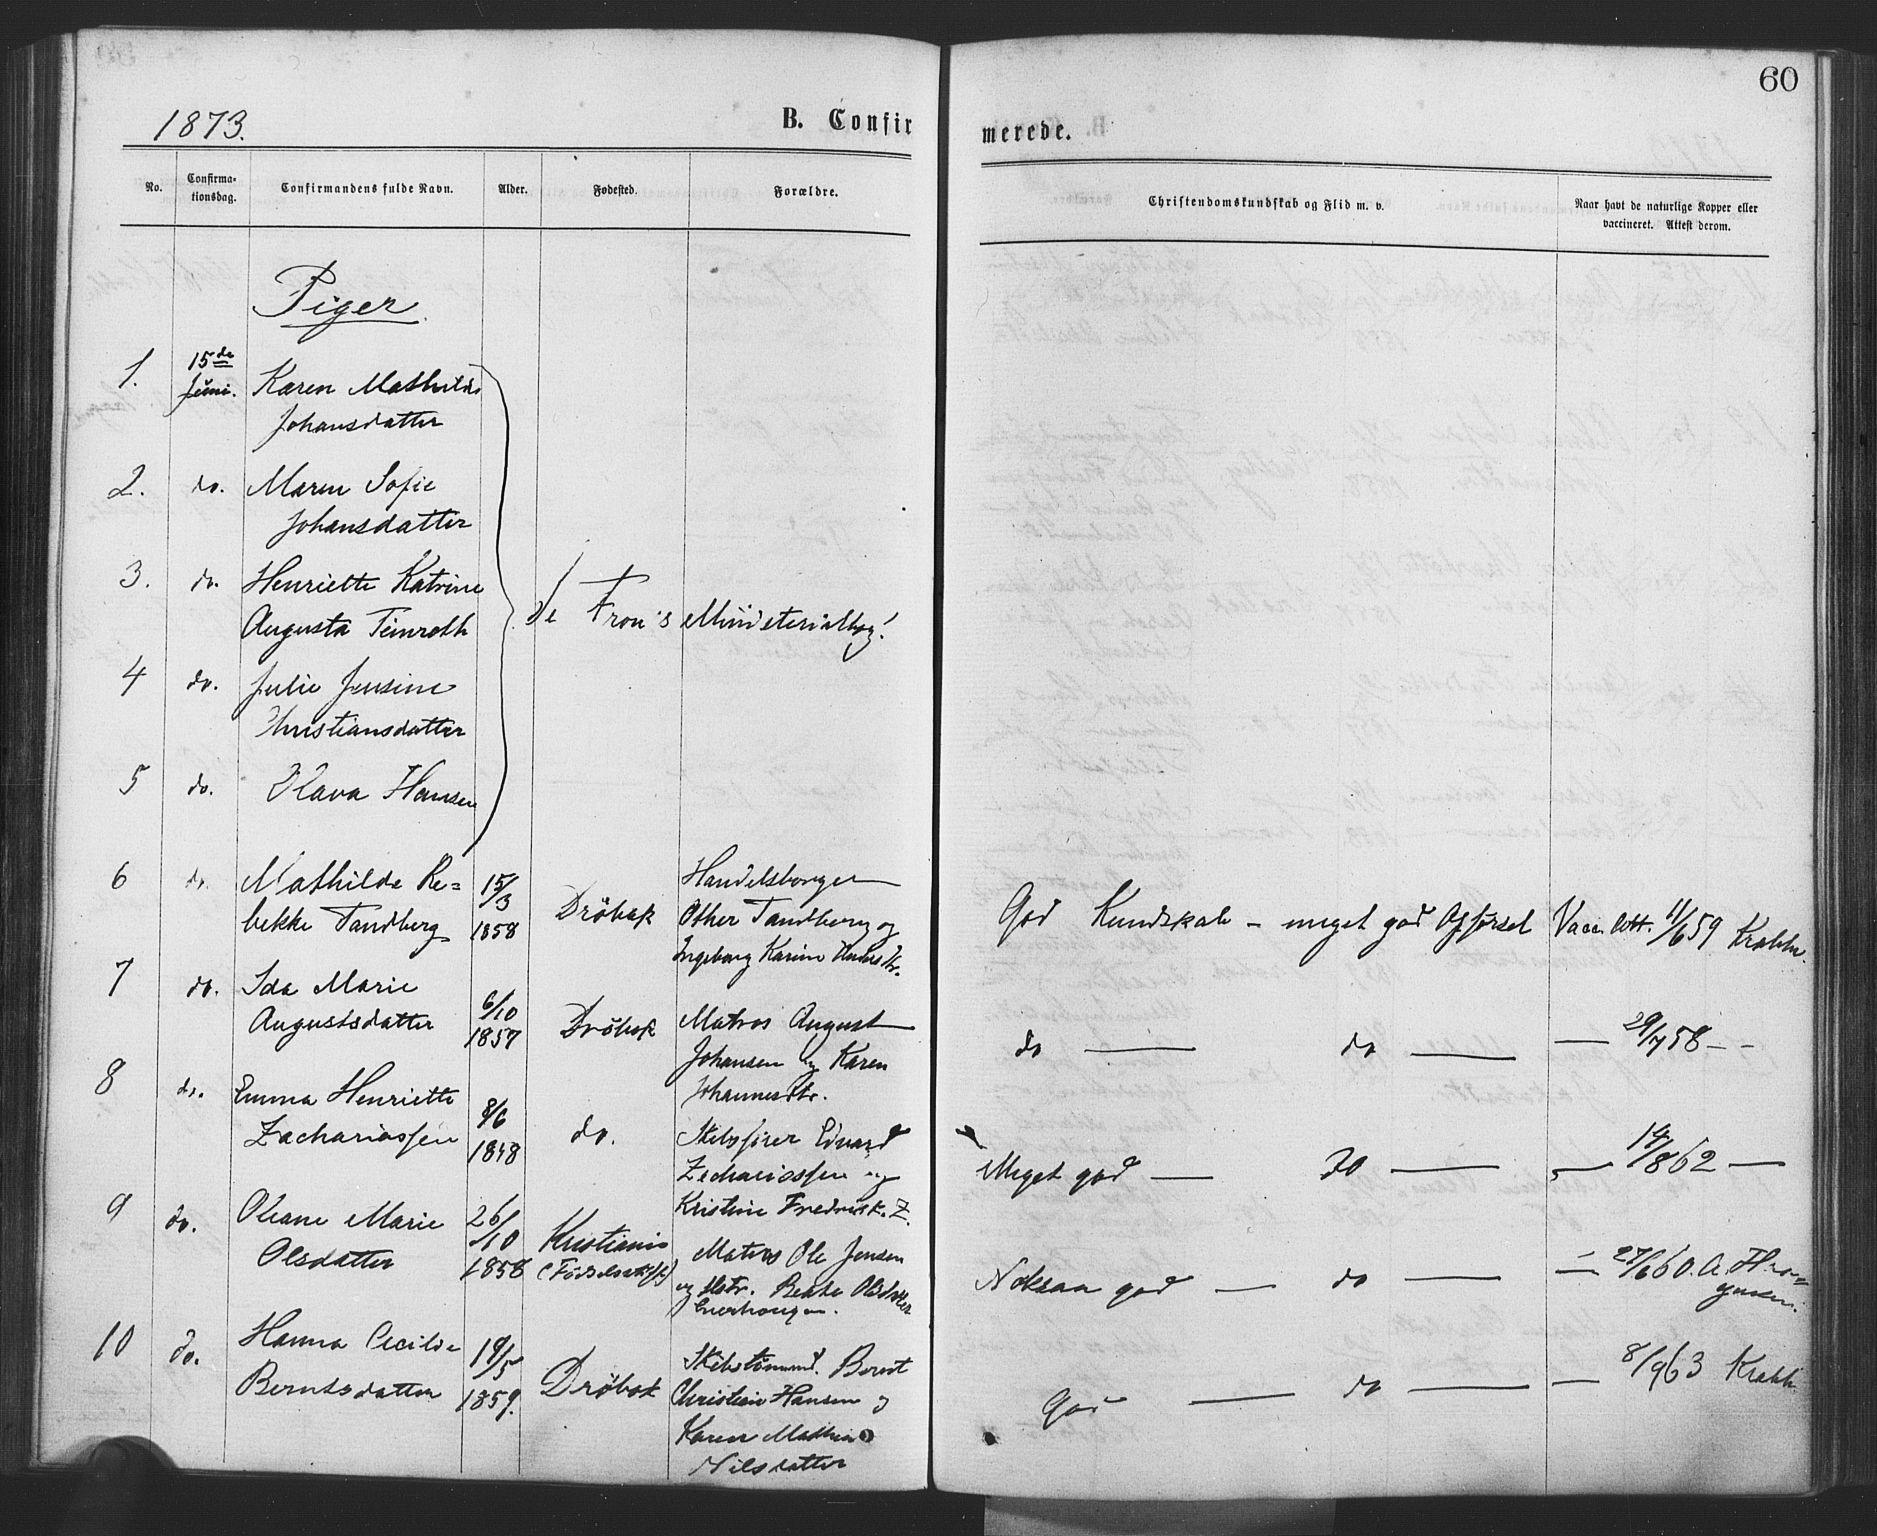 60
1873.
B. Confirmerede.
No.
Confirma-
tionsdag.
Confirmandens fulde Navn.
Alder.
Fødested.
Forældre.
Christendomskundskab og Flid m. v.
Naar havt de naturlige Kopper eller
vaccineret. Attest derom.
Piger
1. 15de Juni. Karen Mathilde
Johansdatter
2. do. Maren Sofie
Johansdatter
3. do. Henriette Katrine
Augusta Teinroth
Se Fron's Ministerialbog!
4 do. Julie Jensine
Christiansdatter
5 do. Olava Hansen
6 do. Mathilde Re=
bekke Tandberg
15/3
1858
Drøbak
Handelsborger
Other Tandberg og
Ingeborg Karine
God Kundskab – meget god Opførsel
Vacc. Att. 11/6 59
7 do. Ida Marie
Augustsdatter
6/10
1857
Drøbak
Matros August
Johansen og Karen
Johannesdtr.
do — do —
— 29/7 58 – –
8 do. Emma Henriette
Zachariassen
8/6
1848
do.
Skibsfører Edvard
Zachariassen og
Kristine Fredrikk. Z.
Meget god — do —
— 14/8 62 —
9 do. Oleane Marie
Olsdatter
26/10
1858
Kristiania
Matros Ole Jensen
og Hstr. Beate
Noksaa god — do —
— 27/6 60. A.
10 do. Hanna Cecilie
Berntsdatter
19/5
1859.
Drøbak
Skibstømmd. Bernt
Christian Hansen og
Karen
Nilsdatter
God — do —
— 8/9 63